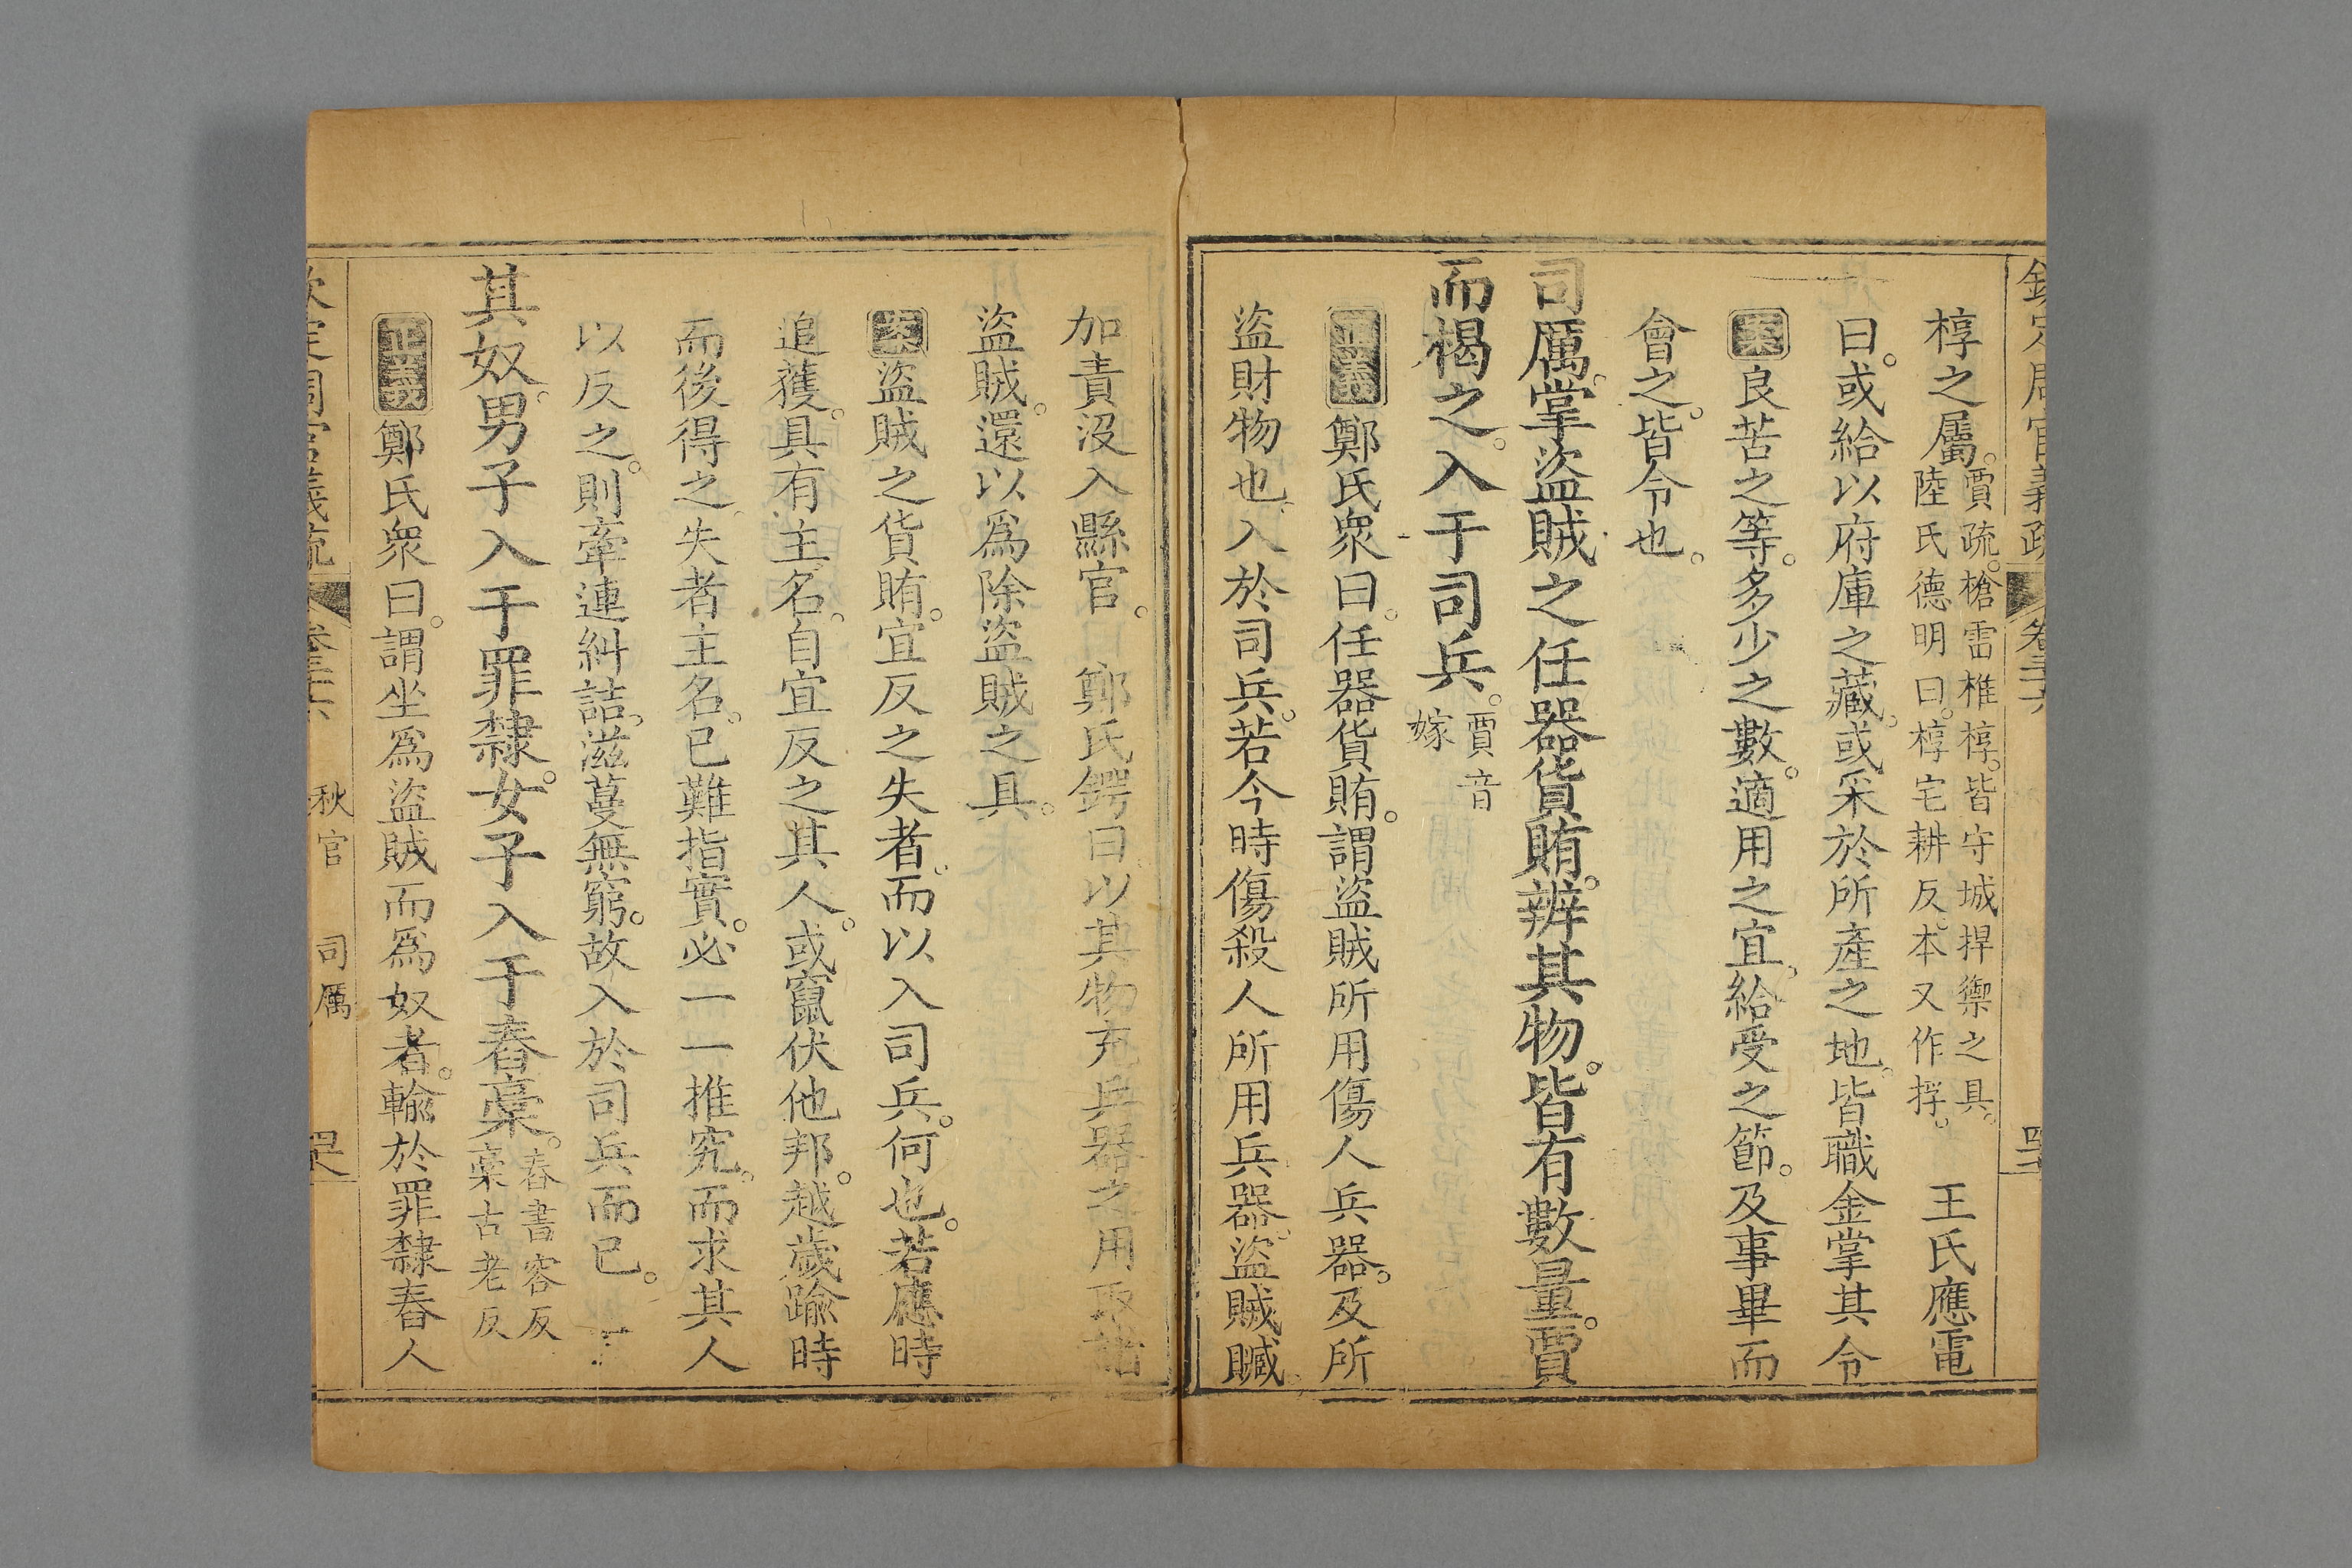 欽定周官義疏 卷三十六
椁之屬。賈疏。槍雷椎椁。皆守城捍禦之具。
陸氏德明曰。椁宅耕反。本又作捊。 王氏應電
曰。或給以府庫之藏。或采於所產之地。皆職金掌其令
案 良苦之等。多少之數。適用之宜。給受之節。及事畢而
會之。皆令也。
司厲。掌盜賊之任器貨賄。辨其物。皆有數量。賈
而楬之。入于司兵。賈音
嫁
正義 鄭氏衆曰。任器貨賄。謂盜賊所用傷人兵器。及所
盜財物也。入於司兵。若今時傷殺人所用兵器。盜賊贓。
加責沒入縣官。 鄭氏鍔曰。以其物充兵器之用。取諸
盜賊。還以爲除盜賊之具。
案 盜賊之貨賄。宜反之失者。而以入司兵。何也。若應時
追獲。具有主名。自宜反之其人。或竄伏他邦。越歲踰時
而後得之。失者主名。已難指實。必一一推究。而求其人
以反之。則牽連糾詰。滋蔓無窮。故入於司兵而已。
其奴。男子入于罪隸。女子入于舂稾。舂書容反
稾古老反
正義 鄭氏衆曰。謂坐爲盜賊而爲奴者。輸於罪隸舂人
欽定周官義疏 卷三十六 秋官 司厲